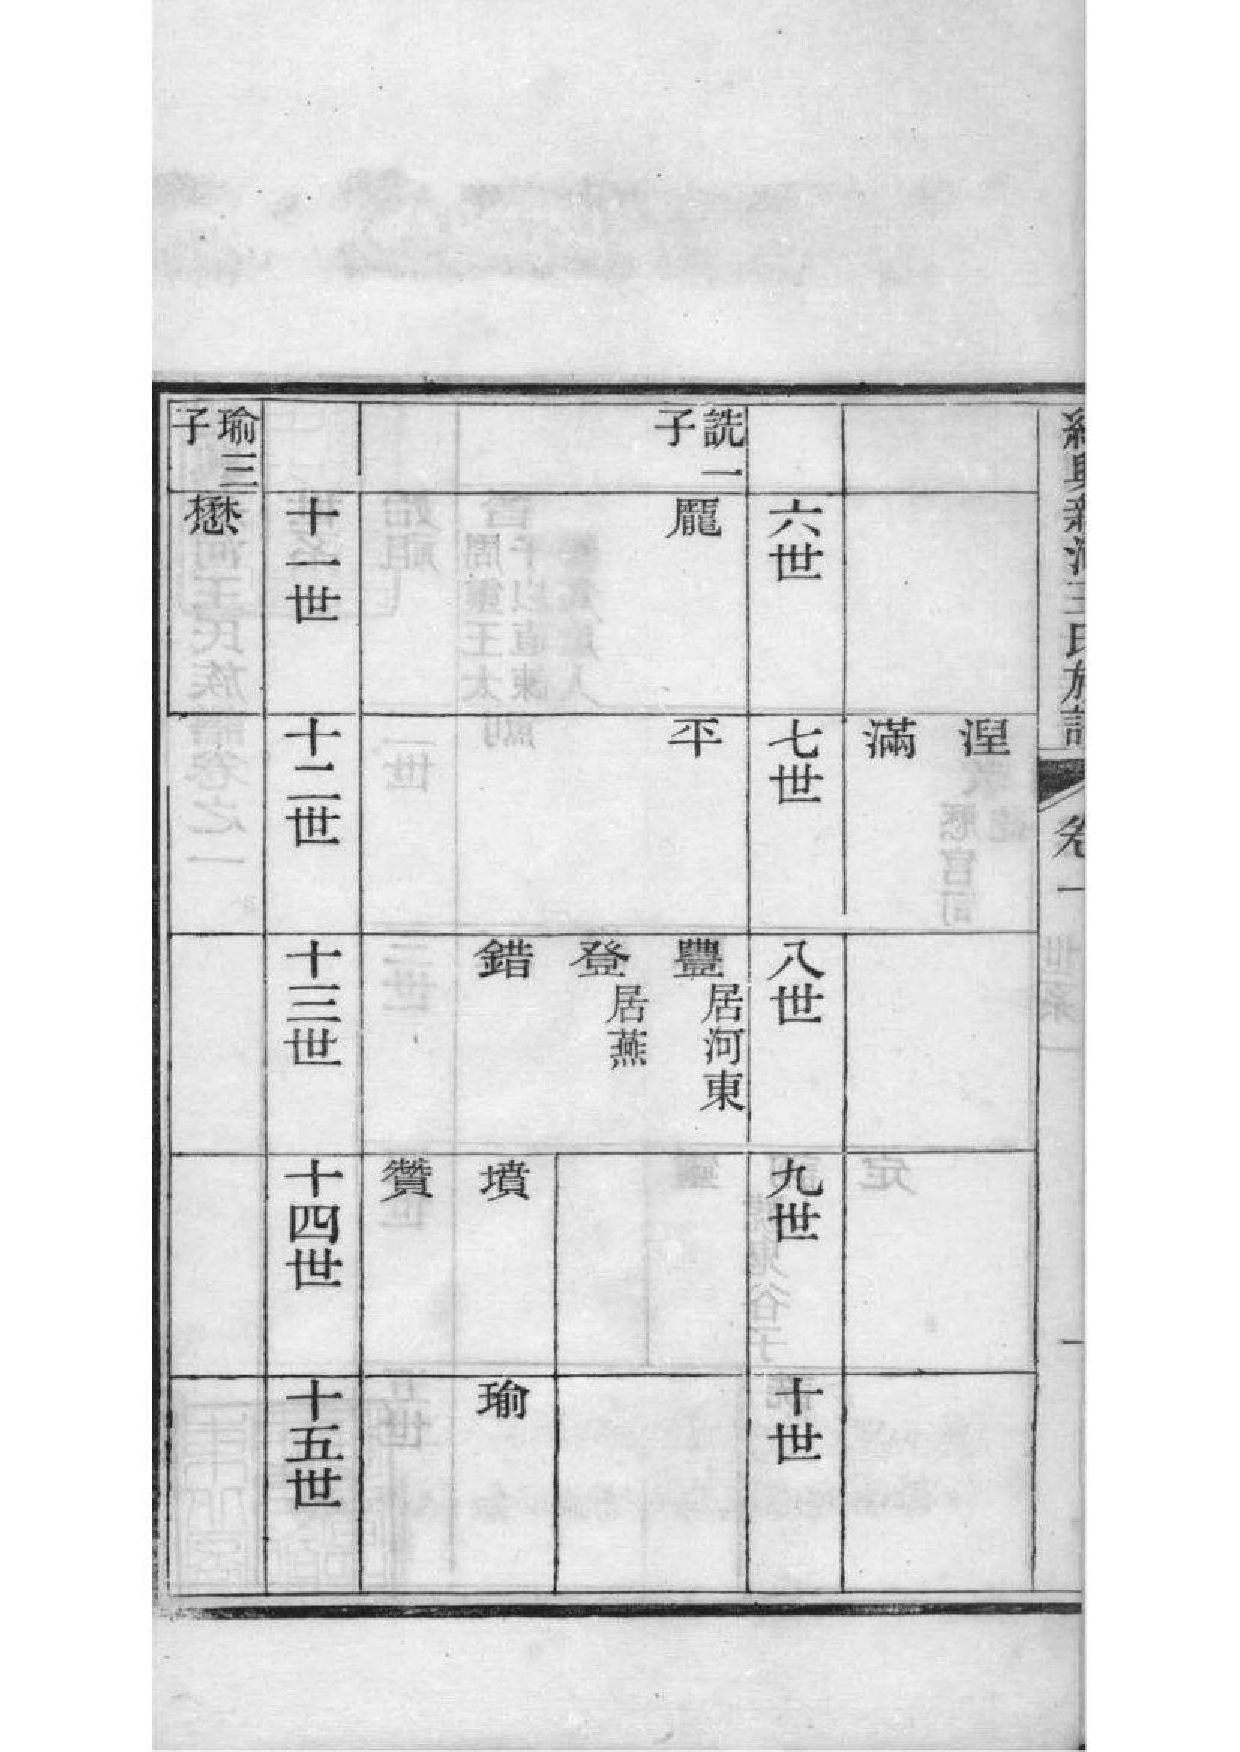 紹興新河王氏族譜 卷一 一
涅
滿
六世
七世
八世
九世
十世
詵一子
龎
平
豐 居河東
登 居燕
錯
墳
贊
瑜
十一世
十二世
十三世
十四世
十五世
瑜三子
懋